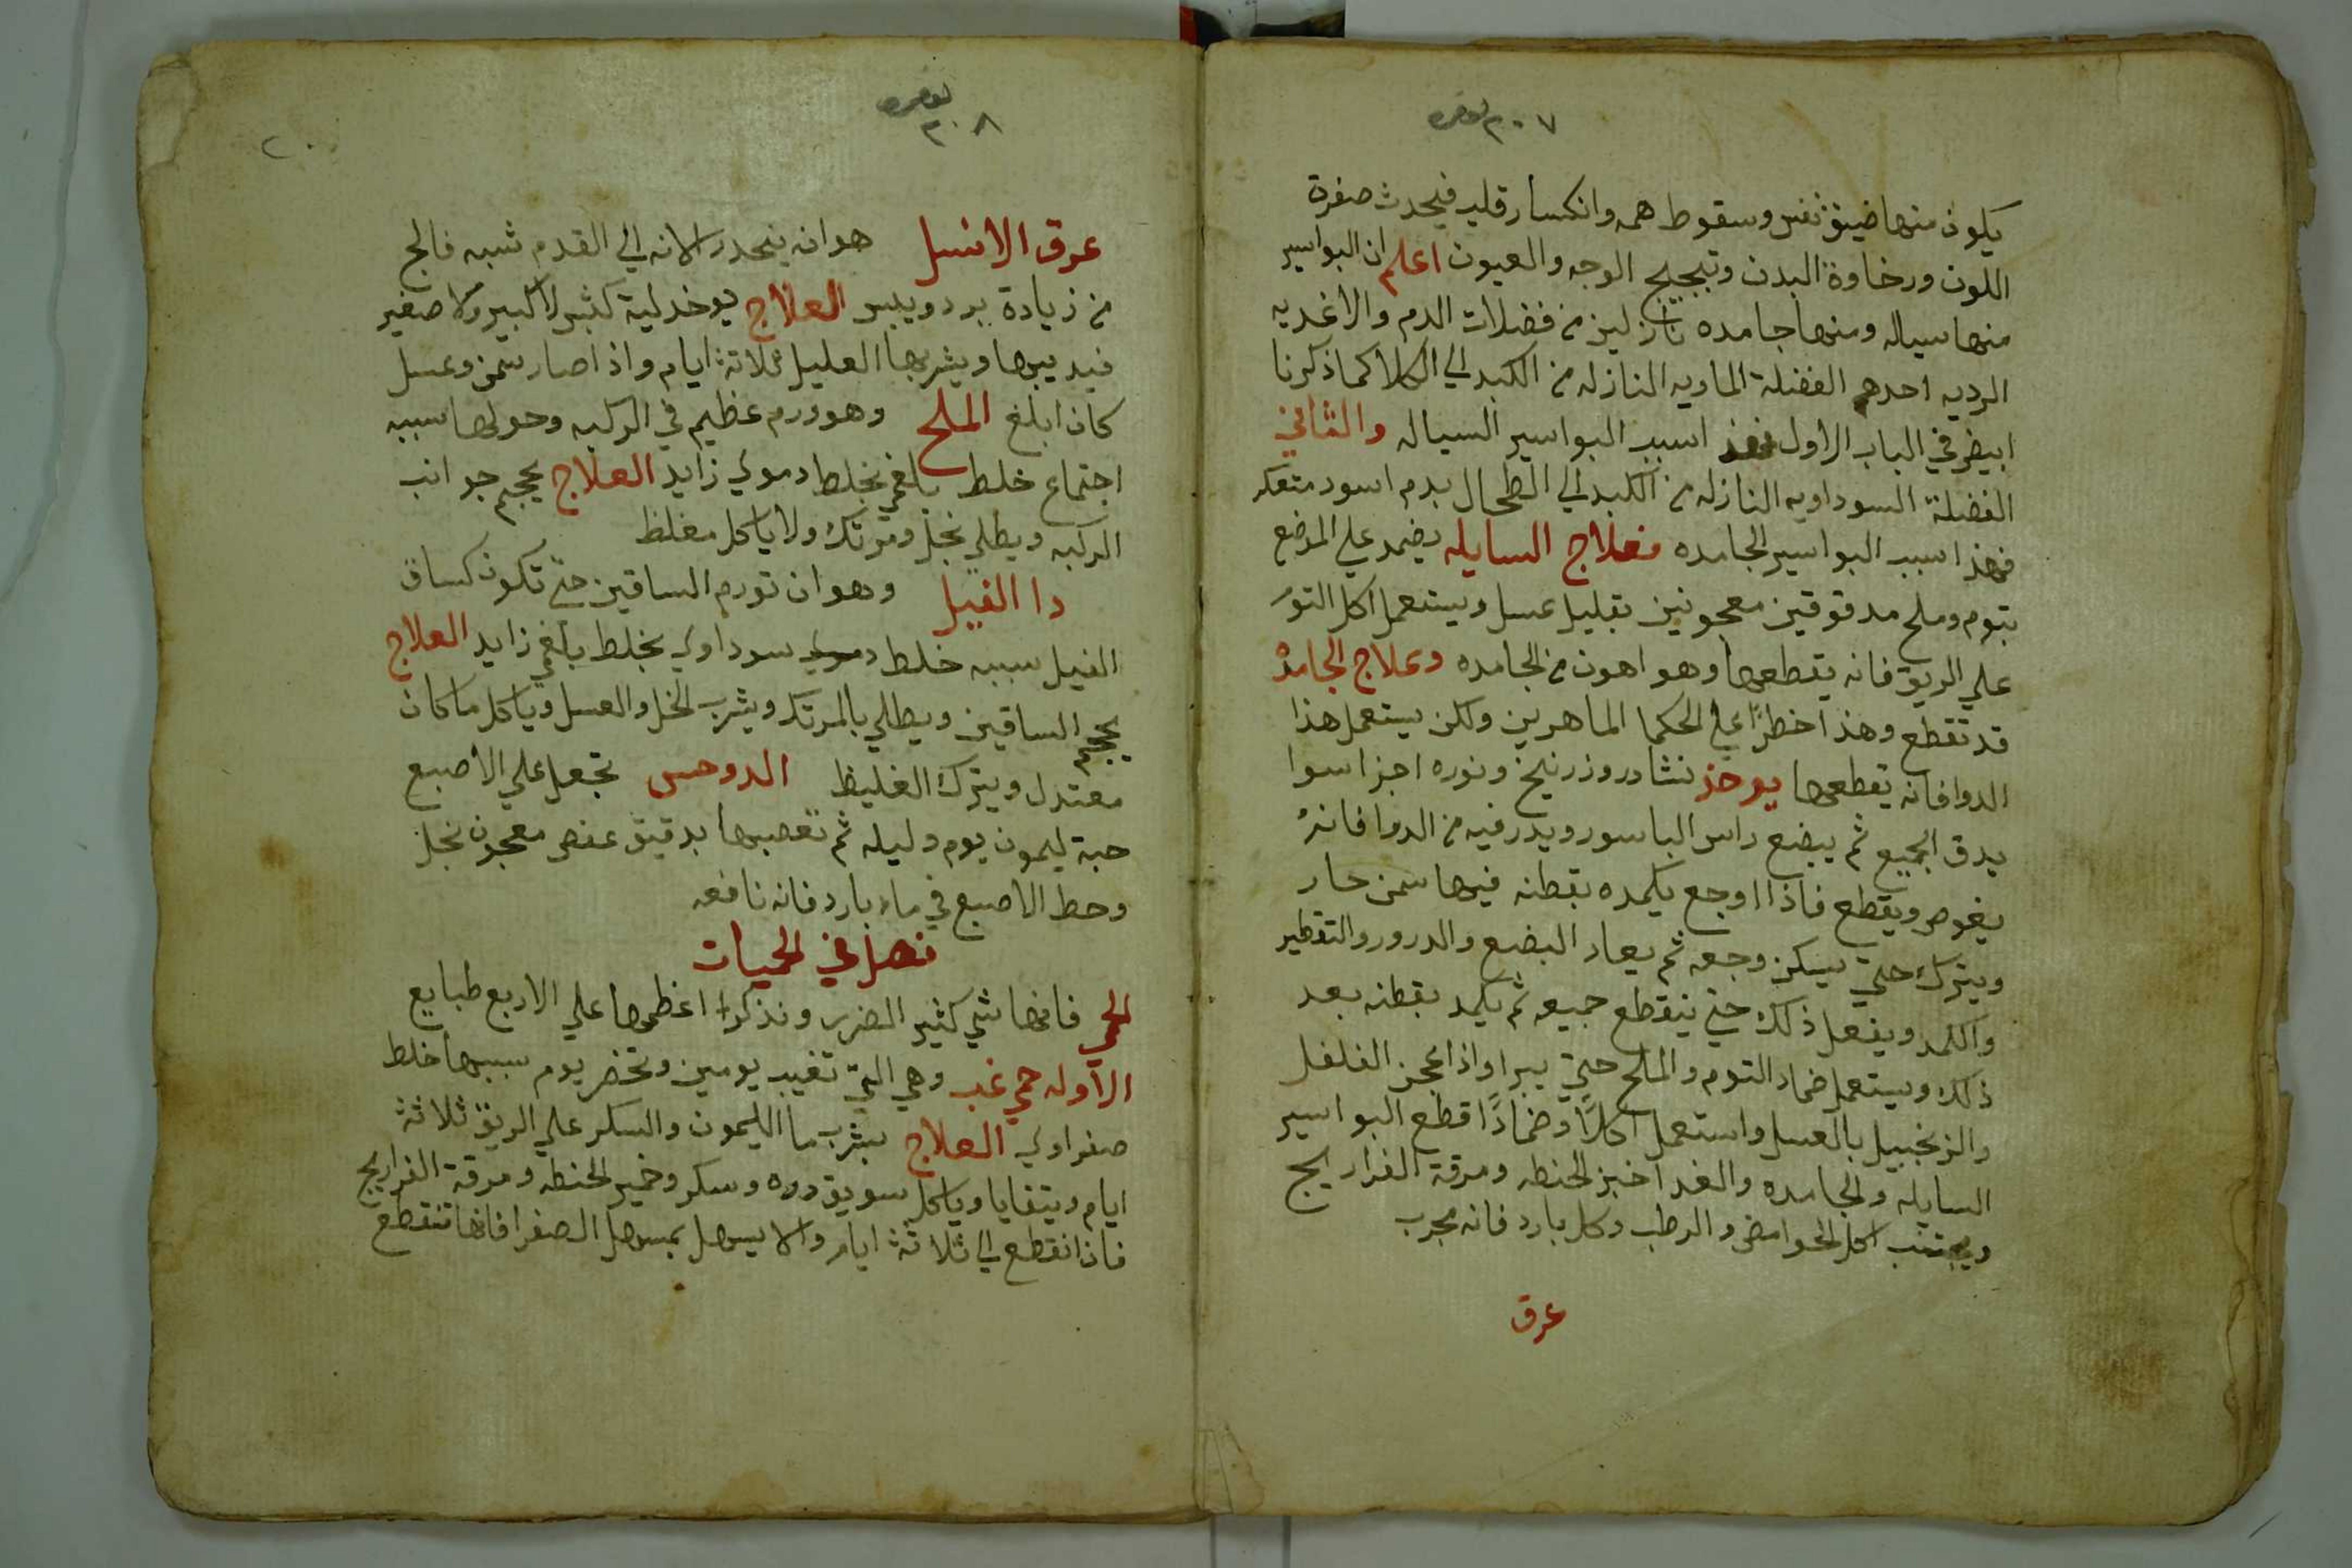 ٣٠٧
يكون منها ضيق نفس وسقوط همه وانكسار قلب فيحدث صفرة
اللون ورخاوة البدن وتبجيج الوجه والعيون اعلم ان البواسير
منها سياله ومنها جامده نازلين من فضلات الدم والاغديه
الرديه احدهم الفضلة الماويه النازله من الكبد الي الكلا كما ذكرنا
ايضر في الباب الاول فهذا سبب البواسير السياله والثاني
الفضلة السوداويه النازله من الكبد الي الطحال بدم اسود متعكر
فهذا سبب البواسير الجامده فعلاج السايله يضمد علي الموضع
بتوم وملح مدقوقين معجونين بقليل عسل ويستعمل اكل التوم
علي الريق فانه يقطعها وهو اهون من الجامده وعلاج الجامدة
قد تقطع وهذا خطرًا علي الحكما الماهرين ولكن يستعمل هذا
الدوا فانه يقطعها يوخذ نشادر وزرنيخ ونوره اجزا سوا
يدق الجميع ثم يبضع راس الباسور ويدر فيه من الدوا فانه
يغوص ويقطع فاذا اوجع يكمده بقطنه فيها سمن حار
ويترك حتي يسكن وجعه ثم يعاد البضع والدرور والتقطير
والكمد ويفعل ذلك حتي ينقطع جميعه ثم يكمد بقطنه بعد
ذلك ويستعمل ضماد التوم والملح حتي يبرا واذا عجن الفلفل
والزنجبيل بالعسل واستعمل اكلاً وضمادًا قطع البواسير
السايله والجامده والغدا خبز الحنطه ومرقة الفراريج
ويجتنب اكل الحوامض والرطب وكل بارد فانه مجرب
عرق
٣٠٨
٢٠
عرق الانسل هو انه ينحدر الانه الي القدم شبه فالج
من زيادة برد ويبس العلاج يوخد لية كبش لا كبير ولا صغير
فيديبها ويشربها العليل ثلاثة ايام واذا صار سمن وعسل
كان ابلغ الملح وهو ورم عظيم في الركبه وحولها سببه
اجتماع خلط بلغمي بخلط دموي زايد العلاج يحجم جوانب
الركبه ويطلي بخل ومرتك ولا ياكل مغلظ
دا الفيل وهو ان تورم الساقين حتي تكون كساق
الفيل سببه خلط دموي سوداوي بخلط بلغمي زايد العلاج
يحجم الساقين ويطلي بالمرتك ويشرب الخل والعسل وياكل ما كان
معتدل ويترك الغليظ الدوحس تجعل علي الاصبع
حبة ليمون يوم وليله ثم تعصبها بدقيق عفص معجون بخل
وحط الاصبع في ماء بارد فانه نافعه
فصل في الحميات
الحمي فانها شي كثير الضرر ونذكر اعظمها علي الاربع طبايع
الاوله حمي غب وهي التي تغيب يومين وتحضر يوم سببها خلط
صفراوي العلاج يشرب ما الليمون والسكر علي الريق ثلاثة
ايام ويتقايا وياكل سويق دره وسكر وخمير الحنطه ومرقة الفراريج
فاذا انقطع الي ثلاثة ايام والا يسهل بمسهل الصفرا فانها تنقطع